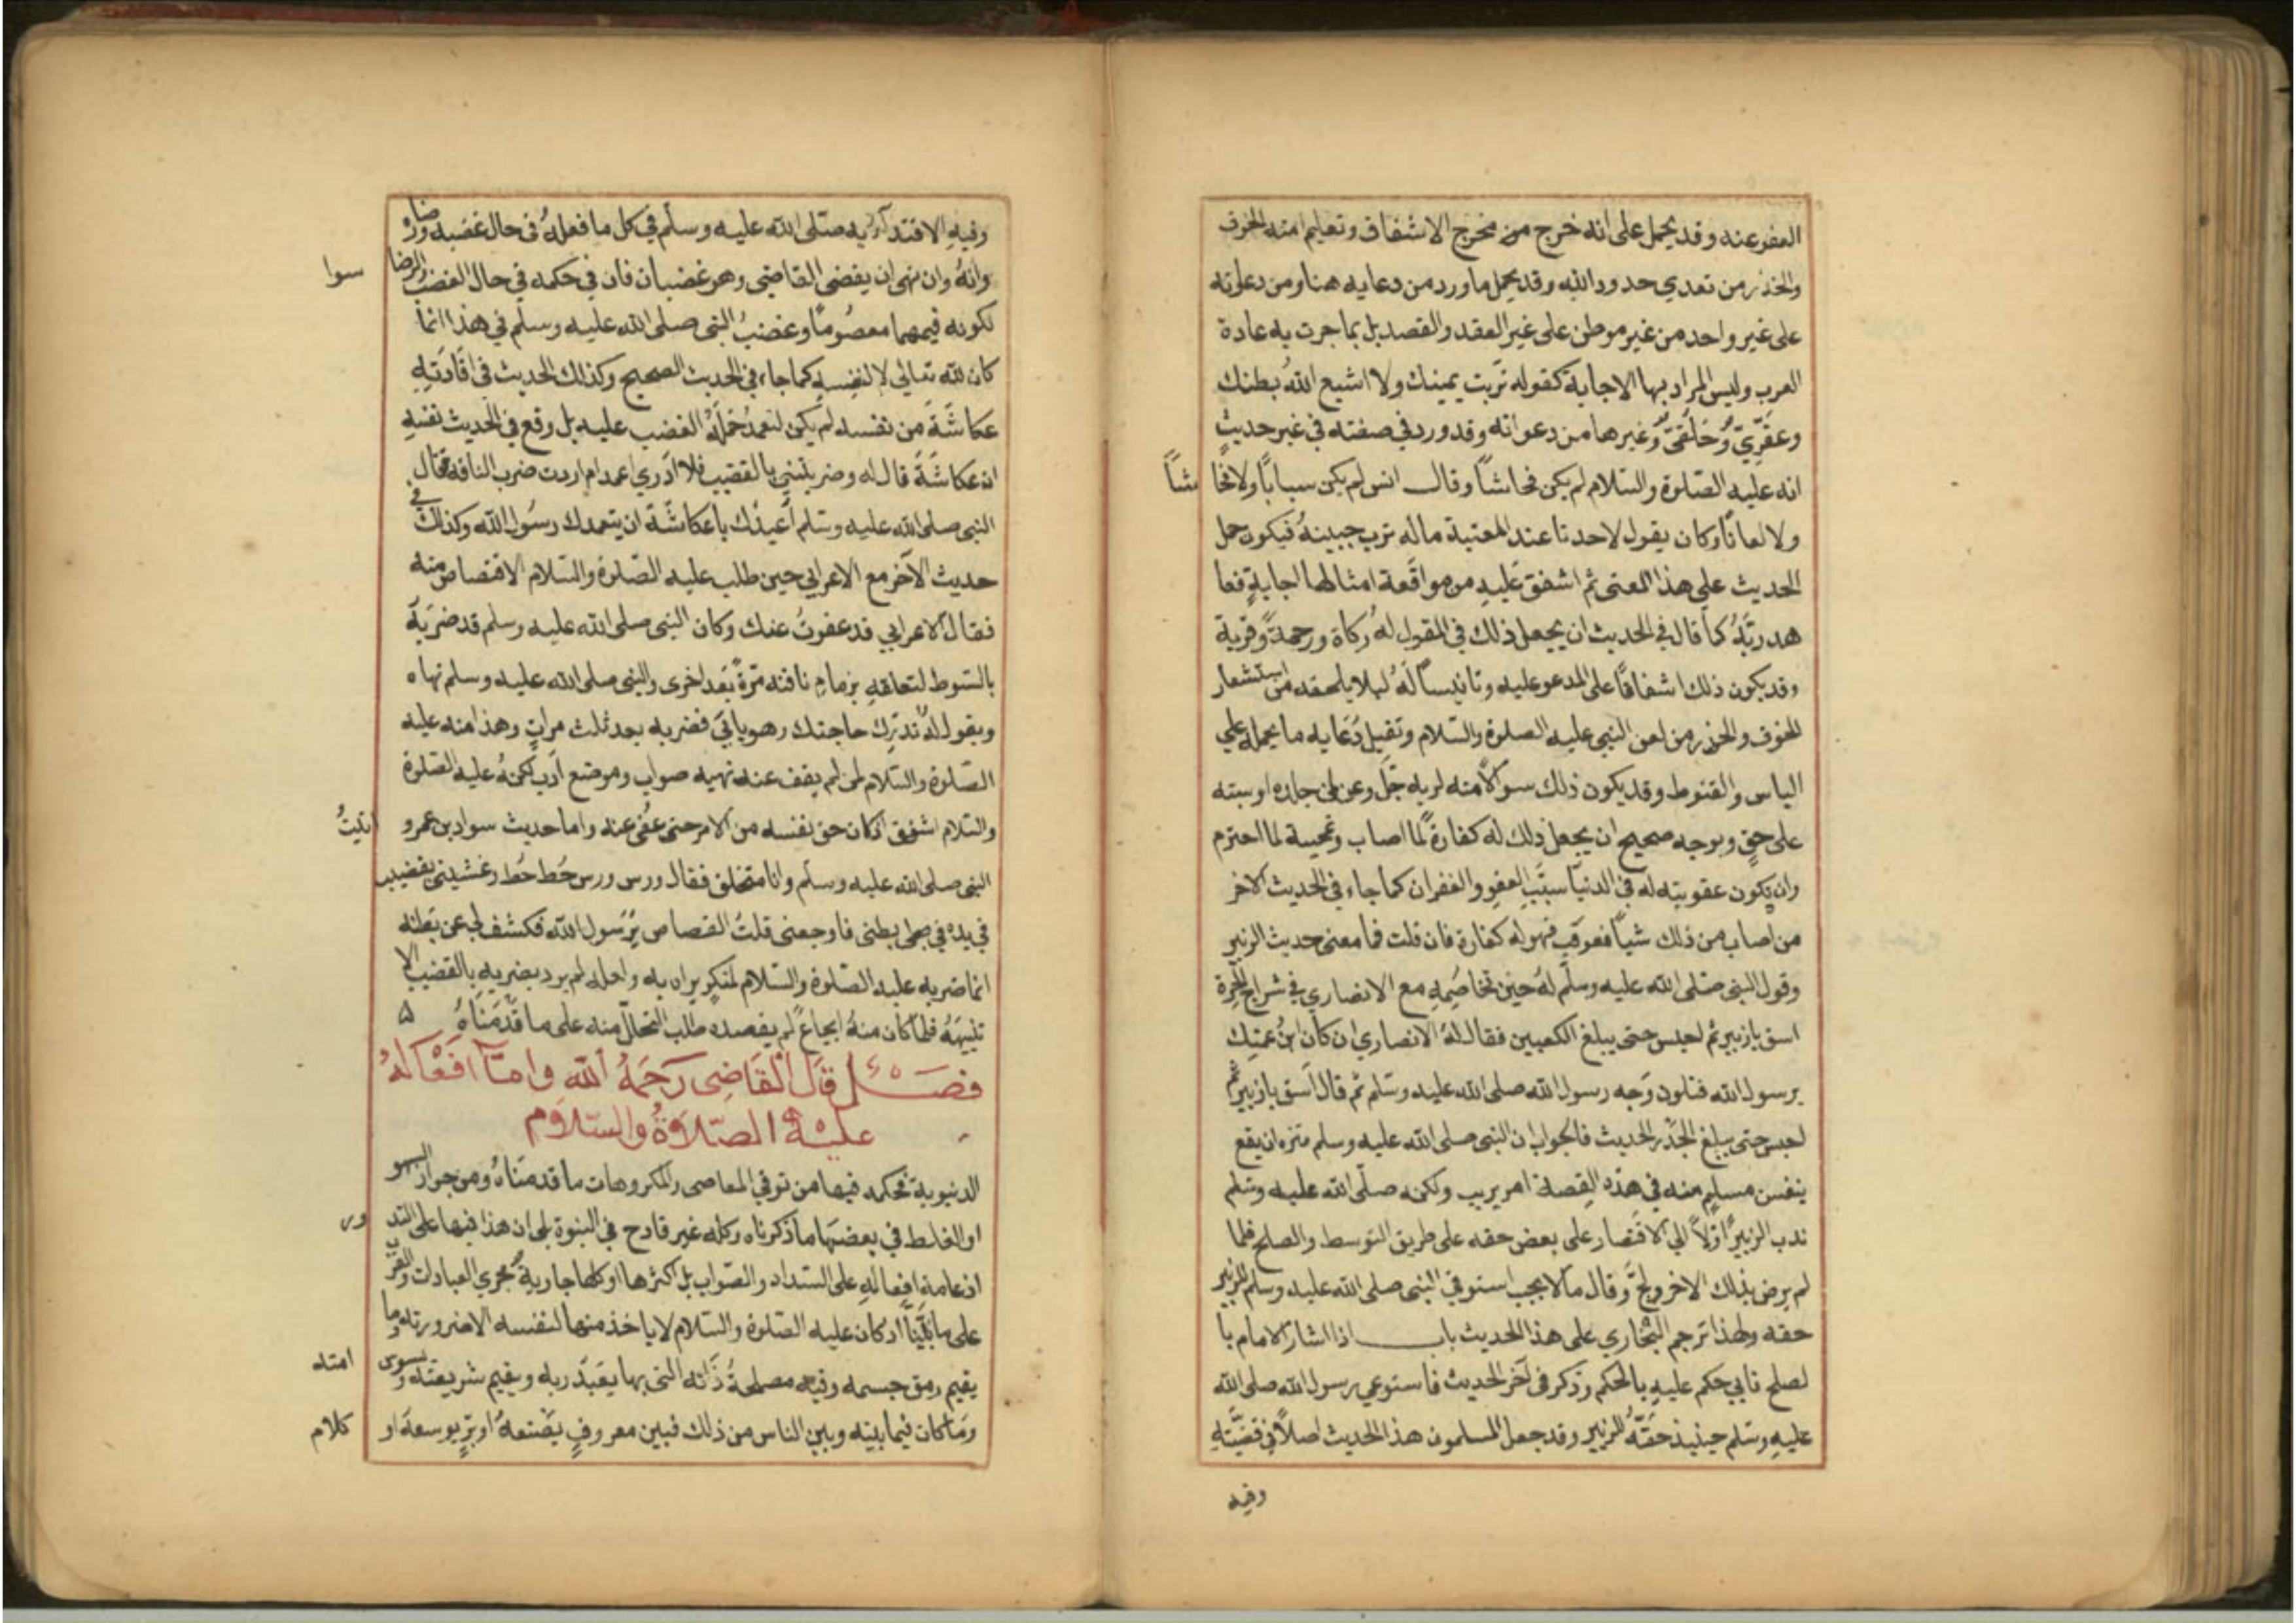 العفو عنه وقد يحمل على انه خرج من مخرج الاشفاق وتعليم امته الخوف
والحذر من تعدي حدود الله وقد يحمل ما ورد من دعايه هنا ومن دعواته
على غير واحد من غير موطن على غير العقد والقصد بل بما جرت به عادة
العرب وليس المراد بها الاجابة كقوله تربت يمينك ولا اشبع الله بطنك
وعقرى وحلقى وغيرها من دعواته وقد ورد في صفته في غير حديث
انه عليه الصلوة والسلام لم يكن فحاشاً وقال انس لم يكن سباباً ولا فحا شاً
ولا لعاناً وكان يقول لاحدنا عند المعتبة ماله ترب جبينه فيكون حمل
الحديث على هذا المعنى ثم اشفق عليه من موافقة امثالها اجابة فعا
هد ربه كما قال في الحديث ان يجعل ذلك في المقول له زكاة ورحمة وقربة
وقد يكون ذلك اشفاقاً على المدعو عليه وتانيساً له ليلا يلحقه من استشعار
الخوف والحذر من لعن النبي عليه الصلوة والسلام وتقبل دعايه ما يحمله على
الياس والقنوط وقد يكون ذلك سوالاً منه لربه جل وعز لمن جلده او سبه
على حق وبوجه صحيح ان يجعل ذلك له كفارة لما اصاب وتمحيه لما اجترم
وان يكون عقوبته له في الدنيا سبب العفو والغفران كما جاء في الحديث الاخر
من اصاب من ذلك شياً فعوقب فهو له كفارة فان قلت فما معنى حديث الزبير
وقول النبي صلى الله عليه وسلم له حين تخاصمه مع الانصاري في شراج الحرة
اسق يا زبير ثم احبس حتى يبلغ الكعبين فقال له الانصاري ان كان ابن عمتك
يرسول الله فتلون وجه رسول الله صلى الله عليه وسلم ثم قال اسق يا زبير ثم
احبس حتى يبلغ الجدر الحديث فالجواب ان النبي صلى الله عليه وسلم منزه ان يقع
بنفس مسلم منه في هذه القصة امر يريب ولكنه صلى الله عليه وسلم
ندب الزبير اولاً الى الاقتصار على بعض حقه على طريق التوسط والصلح فلما
لم يرض بذلك الاخر ولج وقال مالا يجب استوفى النبي صلى الله عليه وسلم للزبير
حقه ولهذا ترجم البخاري على هذا الحديث باب اذا اشار الامام با
لصلح فابى حكم عليه بالحكم وذكر في آخر الحديث فاستوعى رسول الله صلى الله
عليه وسلم حينيذ حقه للزبير وقد جعل المسلمون هذا الحديث اصلاً في قضيته
وفيه
وفيه الاقتداء به صلى الله عليه وسلم في كل ما فعله في حال غضبه ورضاه
وانه وان نهى ان يقضي القاضي وهو غضبان فان في حكمه في حال الغضب والرضا سوا
لكونه فيهما معصوماً وغضب النبي صلى الله عليه وسلم في هذا انما
كان لله تعالى لا لنفسه كما جاء في الحديث الصحيح وكذلك الحديث في اقادته
عكاشة من نفسه لم يكن لتعمد حمله الغضب عليه بل وقع في الحديث نفسه
ان عكاشة قال له وضربتني بالقضيب فلا ادري اعمدا ام اردت ضرب الناقة فقال
النبي صلى الله عليه وسلم اعيذك يا عكاشة ان يتعمدك رسول الله وكذلك في
حديث الآخر مع الاعرابي حين طلب عليه الصلوة والسلام الاقتصاص منه
فقال الاعرابي قد عفوت عنك وكان النبي صلى الله عليه وسلم قد ضربه
بالسوط لتعلقه بزمام ناقته مرة بعد اخرى والنبي صلى الله عليه وسلم نهاه
ويقول له تدرك حاجتك وهو يابى فضربه بعد ثلث مرات وهذا منه عليه
الصلوة والسلام لمن لم يقف عند نهيه صواب وموضع ادب لكنه عليه الصلوة
والسلام اشفق اذ كان حق نفسه من الامر حتى عفى عنه واما حديث سواد بن عمرو اتيتُ
النبي صلى الله عليه وسلم وانا متخلق فقال ورس ورس حط حط وغشيني بقضيب
في يده في بطني فاوجعني قلت القصاص يرسول الله فكشف لي عن بطنه
انما ضربه عليه الصلوة والسلام لمنكر يراه به ولعله لم يرد بضربه بالقضيب الا
تنبيهه فلما كان منه ايجاع لم يقصده طلب التحلل منه على ما قدمناه ۵
فصل قال القاضي رحمه الله واما افعاله
عليه الصلاة والسلام
الدنيوية فحكمه فيها من توقي المعاصي والمكروهات ما قدمناه ومن جواز السهو
او الغلط في بعضها ما ذكرناه وكله غير قادح في النبوة بلى ان هذا فيها على الند ور
اذ عامة افعاله على السداد والصواب بل اكثرها او كلها جارية مجرى العبادات والقرب
على ما بينا اذ كان عليه الصلوة والسلام لا ياخذ منها لنفسه الا ضرورته وما
يقيم رمق جسمه وفيه مصلحة ذاته التي بها يعبد ربه ويقيم شريعته ويسوس امته
وما كان فيما بينه وبين الناس من ذلك فبين معروف يصنعه او بر يوسعه او كلام